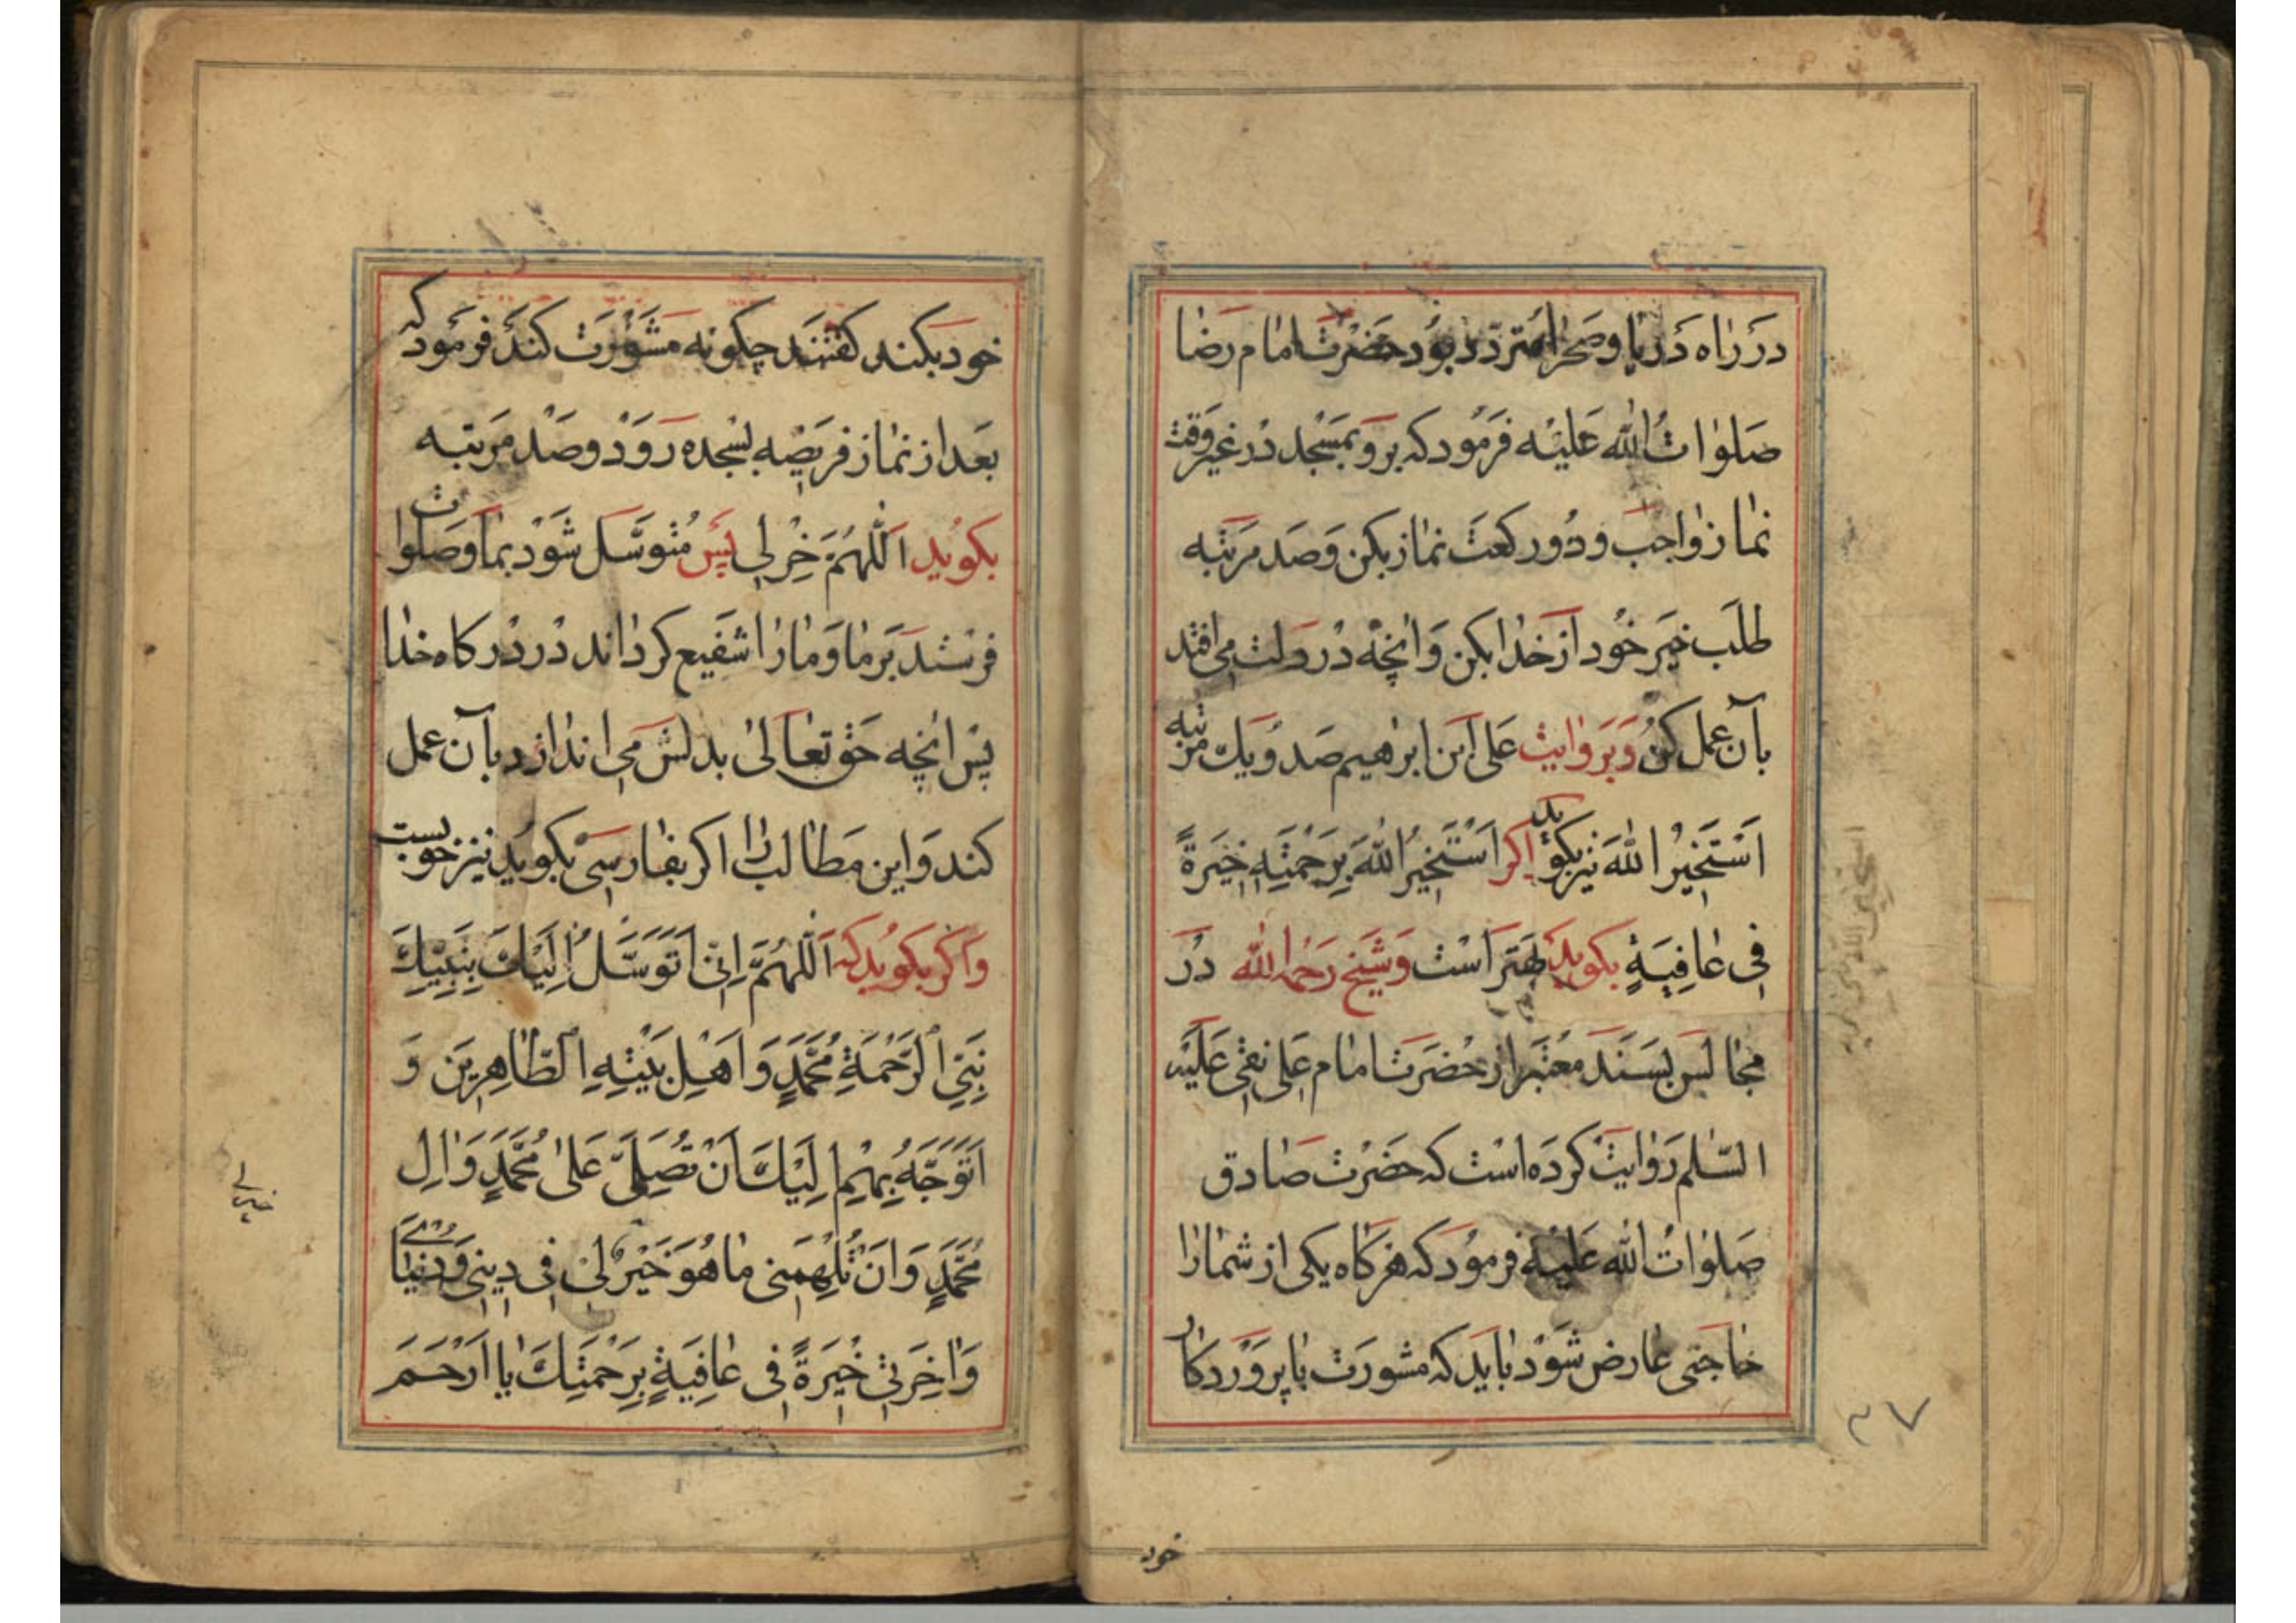 دَرْ رٰاه دَرْیٰا وصَحْرٰا مُتردّد بوُد حَضْرَتْ امٰام رضٰا
صَلوٰاتُ اللّٰه عَلَیْه فَرمُود که برو بمَسْجد دَرْ غیر وَقت
نمٰاز وٰاجبْ و دُو رکعَت نمٰاز بکن وَصَد مَرتَبه
طلَب خیَر خُود اَز خدٰا بکن وَانچه دَرْ دلت می افتد
بآن عمل کن وَبَر وٰایت علی ابن ابرٰهیم صَد وُیك مرتبه
اَسْتَخیٖرُ اللّٰهَ نیز بکوید اکر اَسْتَخیٖرُ اللّٰهَ بِرَحْمَتِهٖ خِیَرَةً
فیٖ عٰافِیَةٍ بکوید بهَتر اَست وَشَیخ رَحمه اللّٰه دَرْ
مجٰالس بسَنَد معْتبر از حْضَرَت امٰام عَلی نقی عَلیَه
السّلٰم رَوٰایَتْ کرْدَه اسْت که حضَرْت صٰادق
صَلوٰاتُ اللّٰه عَلیْه فرمُود که هَرکاه یکی از شمٰا رٰا
حٰاجتی عٰارض شَوَدْ بٰاید که مشورَت بٰا پروَرْدکٰار
خود
۳۷
خود بکند کفتند چکونه مَشَوْرَت کندَ فرمَود که
بعَد از نمٰاز فریَضِه بسْجده رَوَدْ و صَدْ مَرتبه
بکویُد اَللّٰهُمَّ خِرْ لیٖ پَس مُتوسَّل شَوَدْ بمٰا وَصَلوات
فرستد بَر مٰا وَ مٰا رٰا شفَیع کردٰاند در دَرْکاه خدٰا
پَس انچه حَق تعٰالیٰ بدلش می اندٰازد بآن عمل
کند وَاین مَطٰالب رٰا اکر بفٰارسی بکویَد نیز خوبست
وَاکر بکویُد که اَللّٰهُمَّ اِنّیٖ اَتَوَسَّلُ اِلَیْكَ بِنَبِیِّكَ
نَبِیِّ الرَّحْمَةِ مُحَّمَدٍ وَ اَهْلِ بَیْتِهِ الطّٰاهِریٖنَ وَ
اَتَوَجَّهُ بِهِمْ اِلَیْكَ اَنْ تُصَلِّیَ عَلیٰ مُحَّمَدٍ وَ اٰلِ
مُحَّمَدٍ وَ اَنْ تُلْهِمَنیٖ مٰا هُوَ خَیْرٌ لیٖ فیٖ دیٖنیٖ وَ دُنْیٰایَ
وَ اٰخِرَتیٖ خِیَرَةً فیٖ عٰافِیَةٍ بِرَحْمَتِكَ یٰا اَرْحَمَ